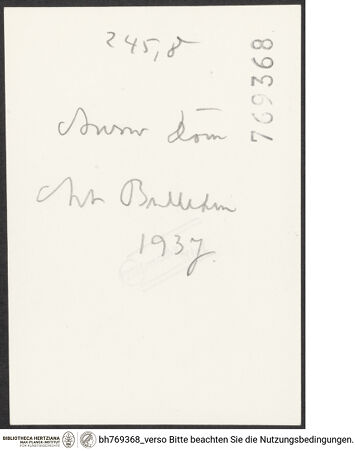 245,8
769368
Röm
Art Bulletin
1937.
BIBLIOTHECA HERTZIANA
MAX-PLANCK-INSTITUT
FÜR KUNSTGESCHICHTE
bh769368_verso Bitte beachten Sie die Nutzungsbedingungen.